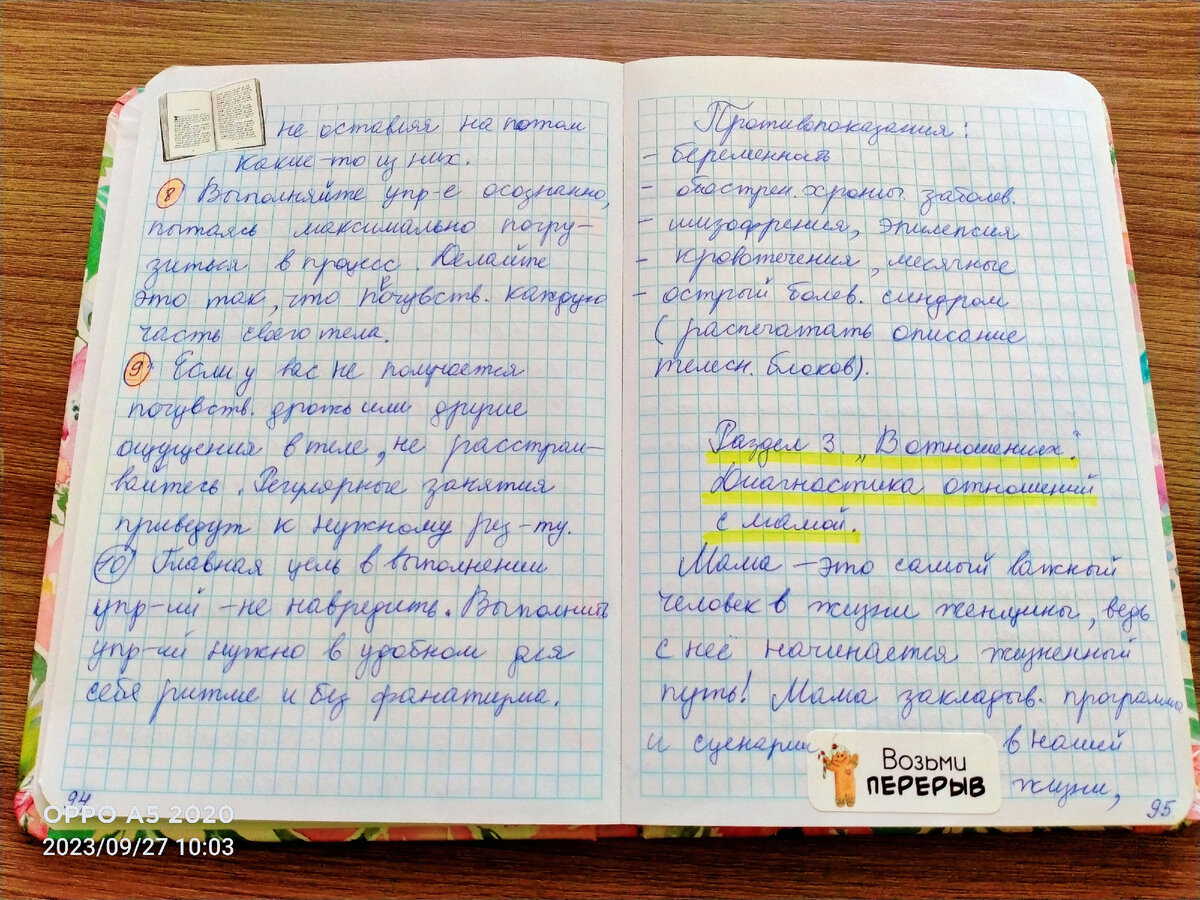 не оставляя на потом
какие-то из них.
8 Выполняйте упр-е осознанно,
пытаясь максимально погру-
зиться в процесс. Делайте
это так, что почувств. каждую
часть своего тела.
9 Если у вас не получается
почувств. дрожь или другие
ощущения в теле, не расстраи-
вайтесь. Регулярные занятия
приведут к нужному рез-ту.
10 Главная цель в выполнении
упр-ий - не навредить. Выполнить
упр-ий нужно в удобном для
себя ритме и без фанатизма.
94
Противопоказания:
- беременность
- обострен. хронич. заболев.
- шизофрения, эпилепсия
- кровотечения, месячные
- острый болев. синдром
( распечатать описание
телесн. блоков).
Раздел 3. „В отношениях."
Диагностика отношений
с мамой.
Мама - это самый важный
человек в жизни женщины, ведь
с неё начинается жизненный
путь! Мама закладыв. программы
и сценарии в нашей
жизни,
Возьми
ПЕРЕРЫВ
95
OPPO A5 2020
2023/09/27 10:03